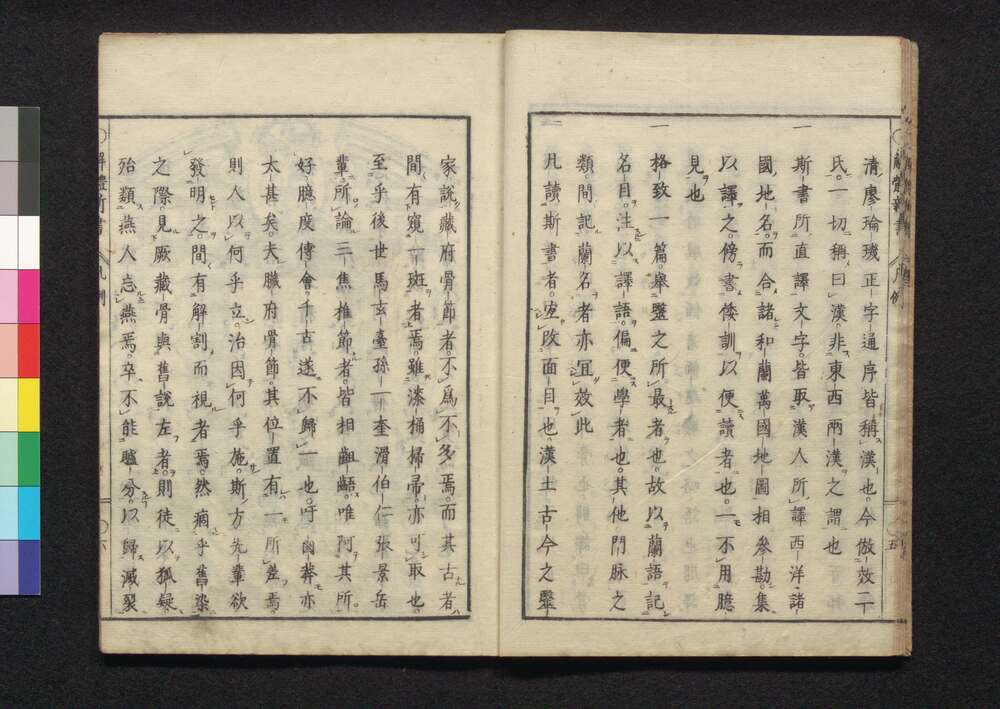 清廖瑜璣正字通序皆稱漢也今倣效二
氏一切稱曰漢非東西兩漢之謂也
一斯書所直譯文字皆取漢人所譯西洋諸
國地名而合諸和蘭萬國地圖相參勘集
以譯之傍書倭訓以便讀者也一不用臆
見也
一格致一篇舉醫之所最者也故以蘭語記
名目注以譯語偏便學者也其他門脉之
類間記蘭名者亦冝效此
一凡讀斯書者宜改面目也漢土古今之醫
家説藏府骨節者不爲不多焉而其古者
間有窺一斑者焉雖漆桶掃帚亦可取也
至乎後世馬玄臺孫一奎滑伯仁張景岳
輩所論三焦推節者皆相齟齬唯阿其所
好臆度傅會千古遂不歸一也吁鹵莽亦
太甚矣夫臟府骨節其位置有一所差焉
則人以何乎立治因何乎施斯方先輩欲
發明之間有解割而視者焉然痼乎舊染
之際見厥藏骨與舊説左者則徒以狐疑
殆類燕人忘燕焉卒不能臚分以歸滅裂
解體新書
凡例
五
解體新書
凡例
六